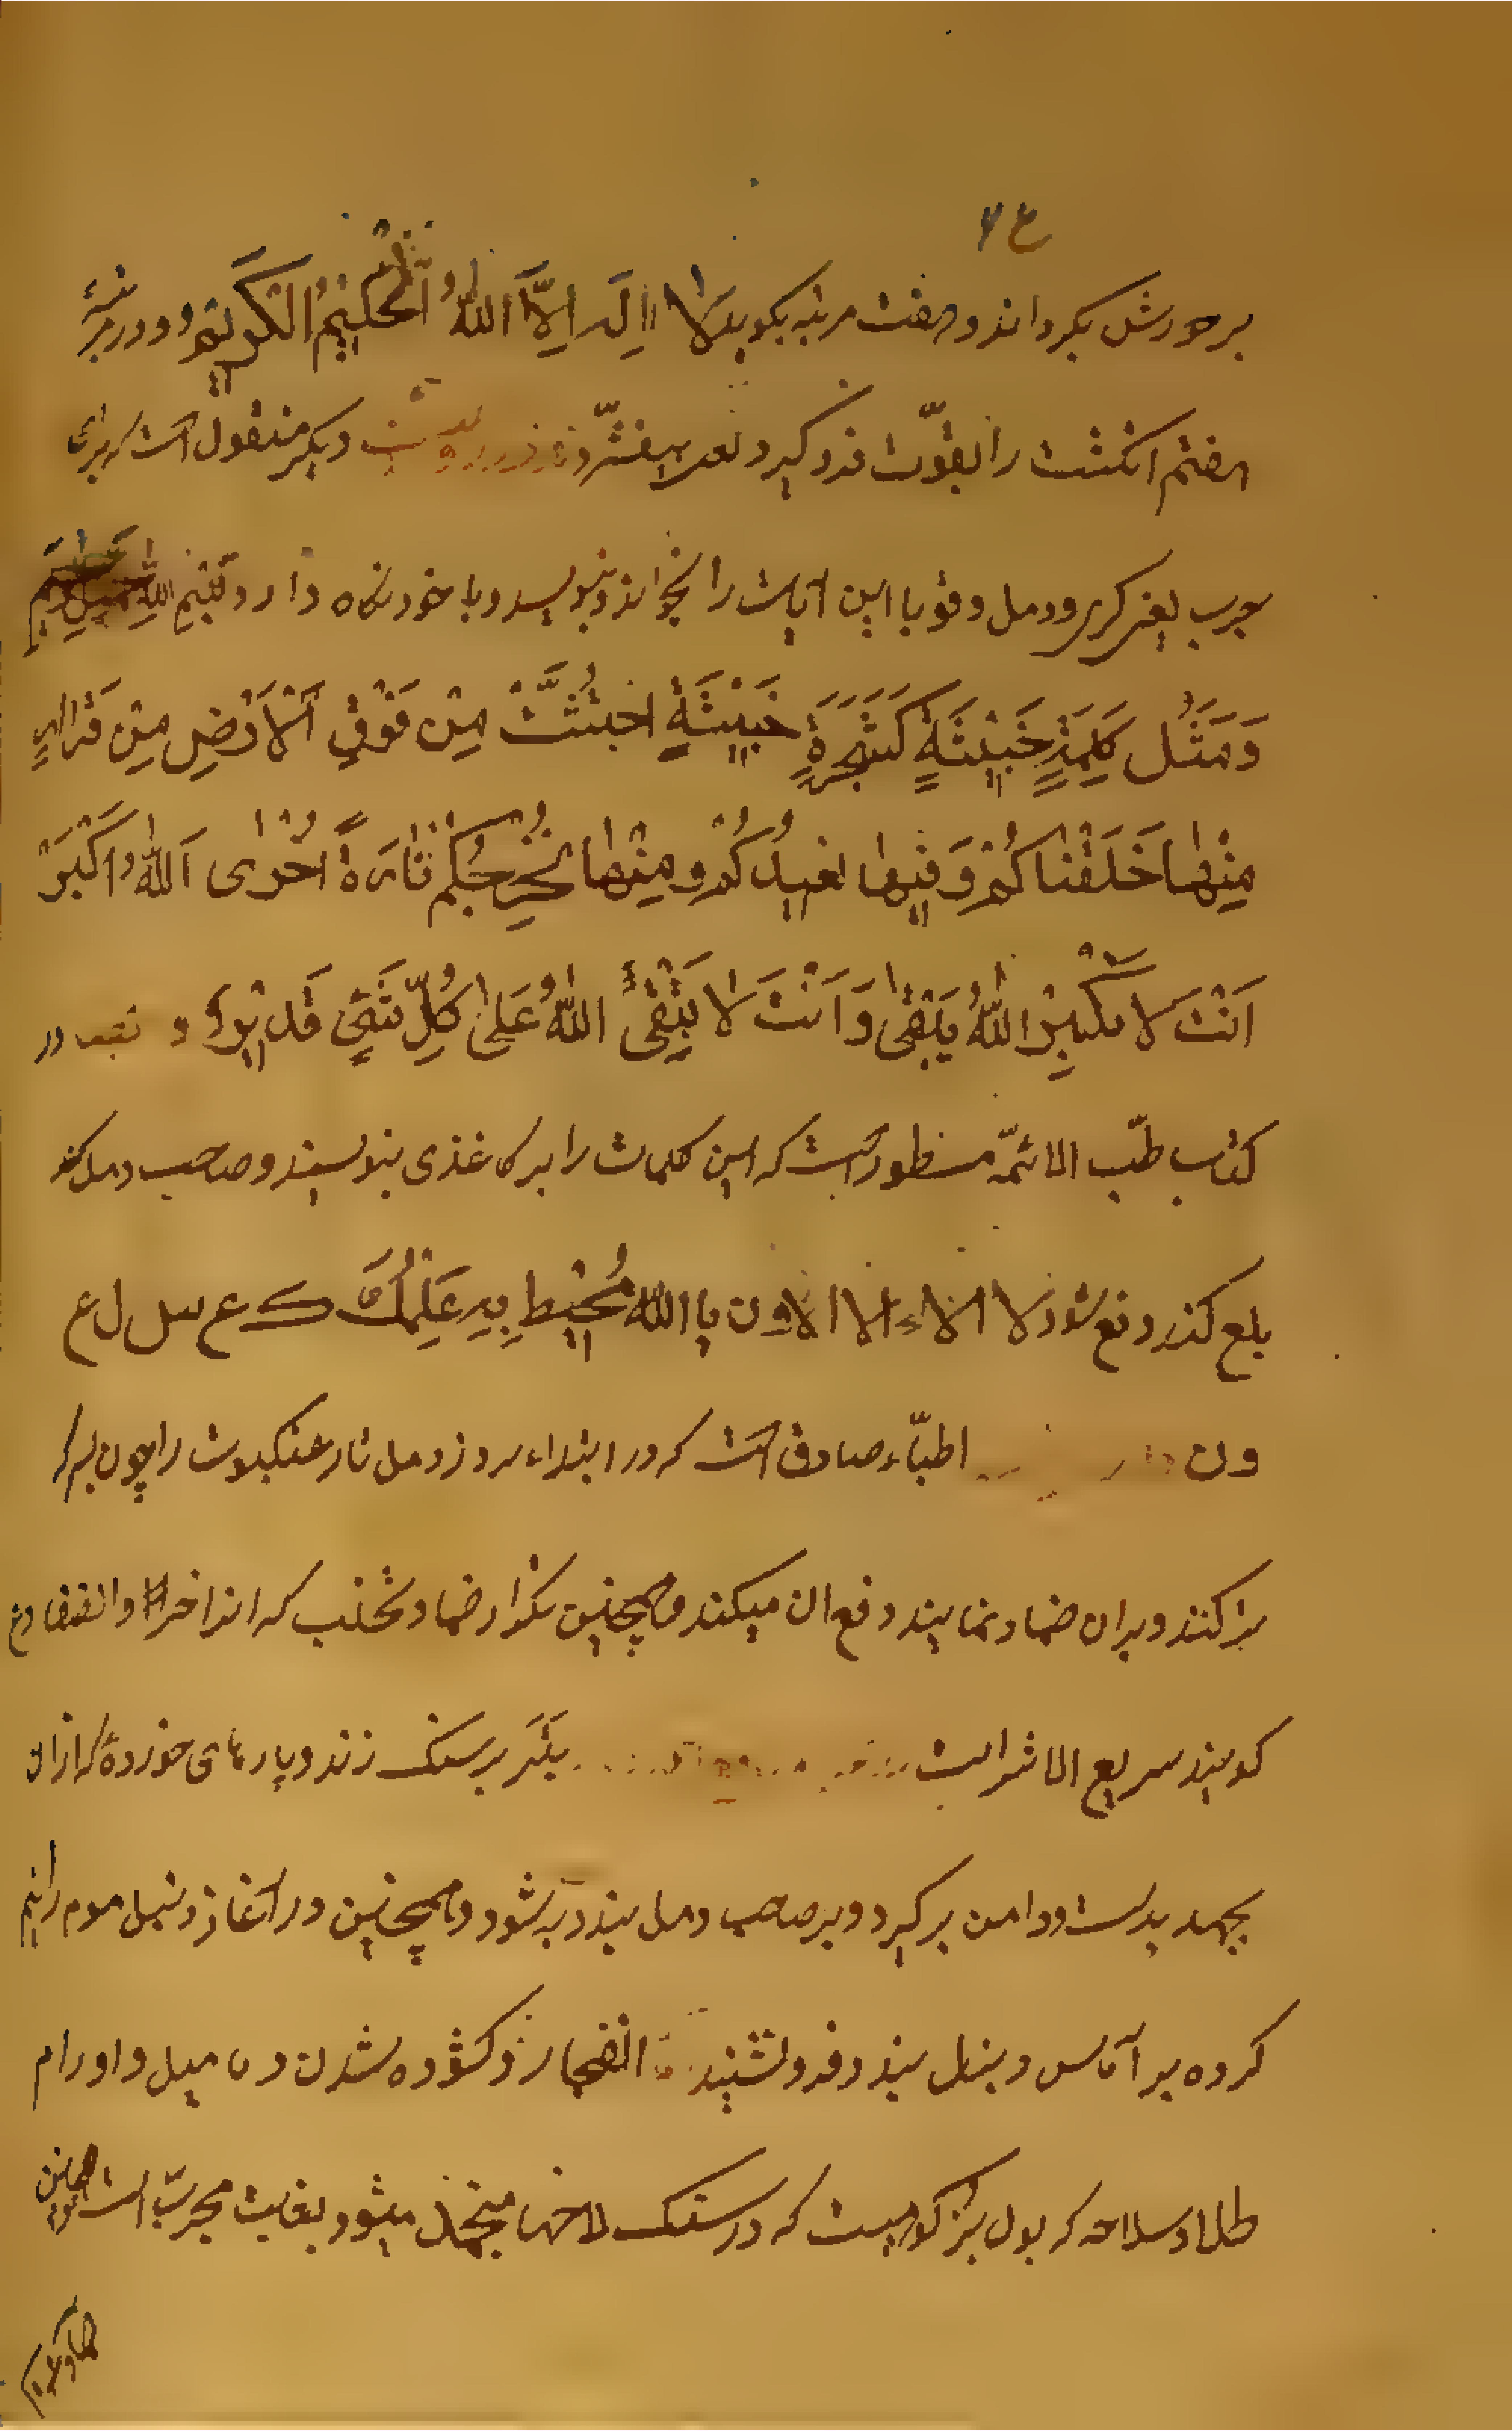 بر دورش بکرداند و هفت مرتبه بکوید لَا اِلَهَ اِلَّا اللهُ اَلْحَلِیْمُ الْکَرِیْمُ و در مرتبهٔ
هفتم انکشت را بقوّت فرو کیرد و بیفشرد دیکر منقول است که برای
جرب یعنی کری و دمل و قوبا این ایات را بخواند و بنویسد و با خود نکاه دارد بِسْمِ اللهِ
وَ مَثَلُ کَلِمَةٍ خَبِیْثَةٍ کَشَجَرَةٍ خَبِیْثَةٍ اجْتُثَّتْ مِنْ فَوْقِ الْاَرْضِ مِنْ قَرَارٍ
مِنْهَا خَلَقْنَاکُمْ وَ فِیْهَا نُعِیْدُکُمْ وَ مِنْهَا نُخْرِجُکُمْ تَارَةً اُخْرٰی اَللهُ اَکْبَرُ
اَنْتَ لَا تکْبِرْ اللهُ یَبْقٰی وَ اَنْتَ لَا تَبْقٰی اللهُ عَلٰی کُلِّ شَیْءٍ قَدِیْرٌ و در
کتاب طبّ الائمّه مسطور است که این کلمات را بر کاغذی بنویسند و صاحب دمل که
بلع کند دفع شود لا الاء الا الاون یا الله مُحِیْط بِهِ عِلْمُکَ ک ع س ل ع
ون اطبّاء صادق است که در ابتداء بروز دمل تار عنکبوت را چون بسرکه
تر کنند و بران ضماد نمایند دفع ان میکند و همچنین تکرار ضماد
کویند سریع الاثر است بر سنک زند و پارهای خوردهٔ که از ان
بجهد بدست و دامن بر کیرد و بر صاحب دمل بندد به شود و همچنین در اغاز دنبل موم را نرم
کرده بر آماس دنبل بندد فرو نشیند انفجار و کشوده شدن دمامیل و اورام
طلاء که بول بز کوهیست که در سنک لاخها منجمد میشود بغایت مجرّب است